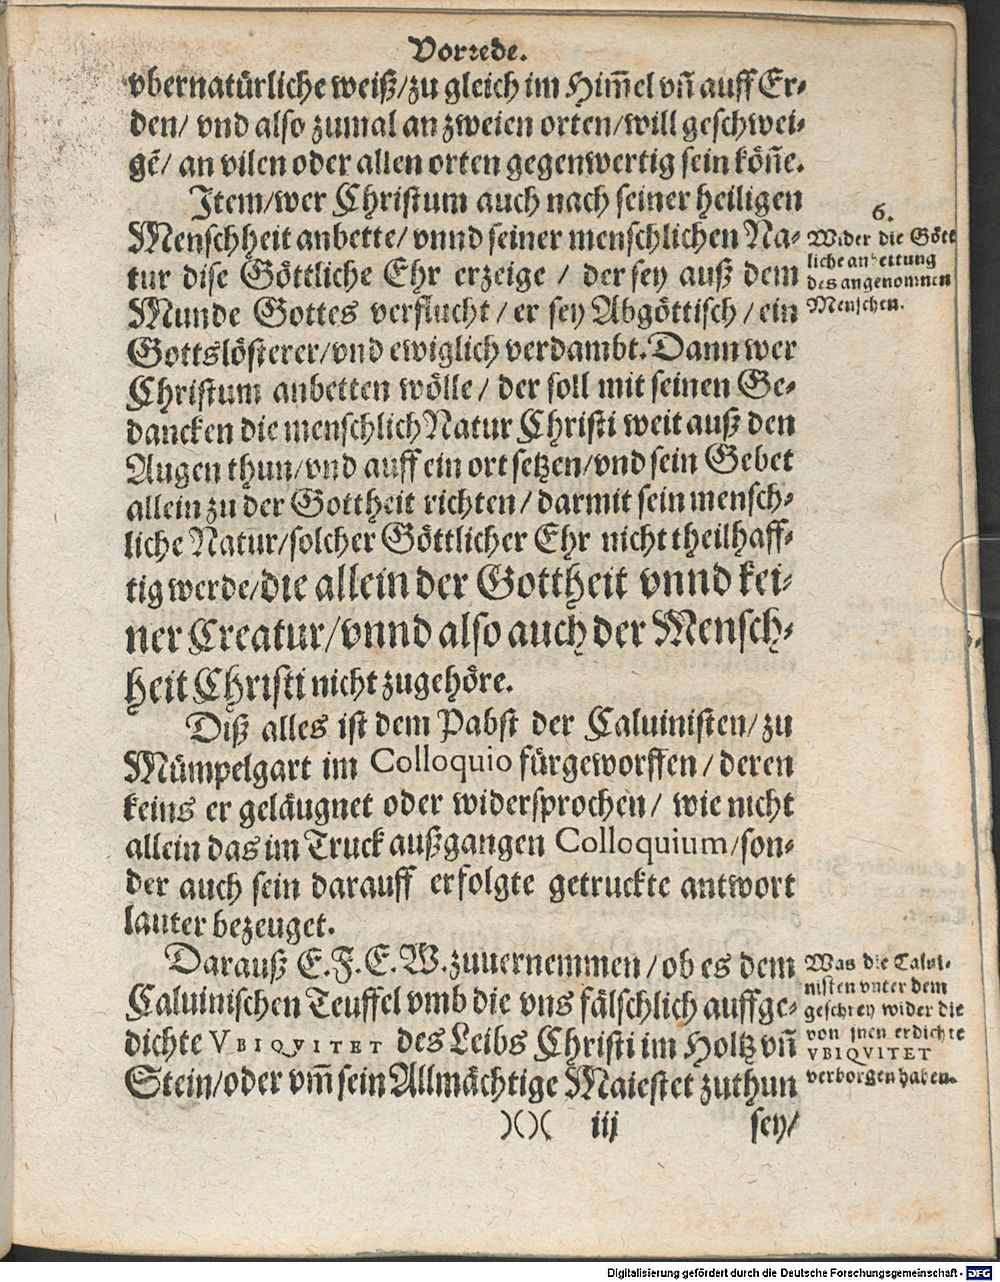 Vorrede.
vbernatürliche weiß/zu gleich im Him̃el vñ auff Er-
den/ vnd also zumal an zweien orten/will geschwei-
gẽ/ an vilen oder allen orten gegenwertig sein köñe.
Item/wer Christum auch nach seiner heiligen
Menschheit anbette/ vnnd seiner menschlichen Na-
tur dise Göttliche Ehr erzeige / der sey auß dem
Munde Gottes verflucht / er sey Abgöttisch / ein
Gottslösterer/vnd ewiglich verdambt. Dann wer
Christum anbetten wölle / der soll mit seinen Ge-
dancken die menschlich Natur Christi weit auß den
Augen thun/vnd auff ein ort setzen/vnd sein Gebet
allein zu der Gottheit richten / darmit sein mensch-
liche Natur/solcher Göttlicher Ehr nicht theilhaff-
tig werde/die allein der Gottheit vnnd kei-
ner Creatur/vnnd also auch der Mensch-
heit Christi nicht zugehöre.
6.
Wider die Gött
liche anbettung
des angenomnen
Menschen.
Diß alles ist dem Pabst der Caluinisten/ zu
Mümpelgart im Colloquio fürgeworffen / deren
keins er geläugnet oder widersprochen/ wie nicht
allein das im Truck außgangen Colloquium/son-
der auch sein darauff erfolgte getruckte antwort
lauter bezeuget.
Darauß E. F. E. W. zuuernemmen / ob es dem
Caluinischen Teuffel vmb die vns fälschlich auffge-
dichte VBIQVITET des Leibs Christi im Holtz vñ
Stein/oder vm̃ sein Allmächtige Maiestet zuthun
Was die Calui-
nisten vnter dem
geschrey wider die
von jnen erdichte
VBIQVITET
verborgen haben.
)()( iij sey/
Digitalisierung gefördert durch die Deutsche Forschungsgemeinschaft - DFG